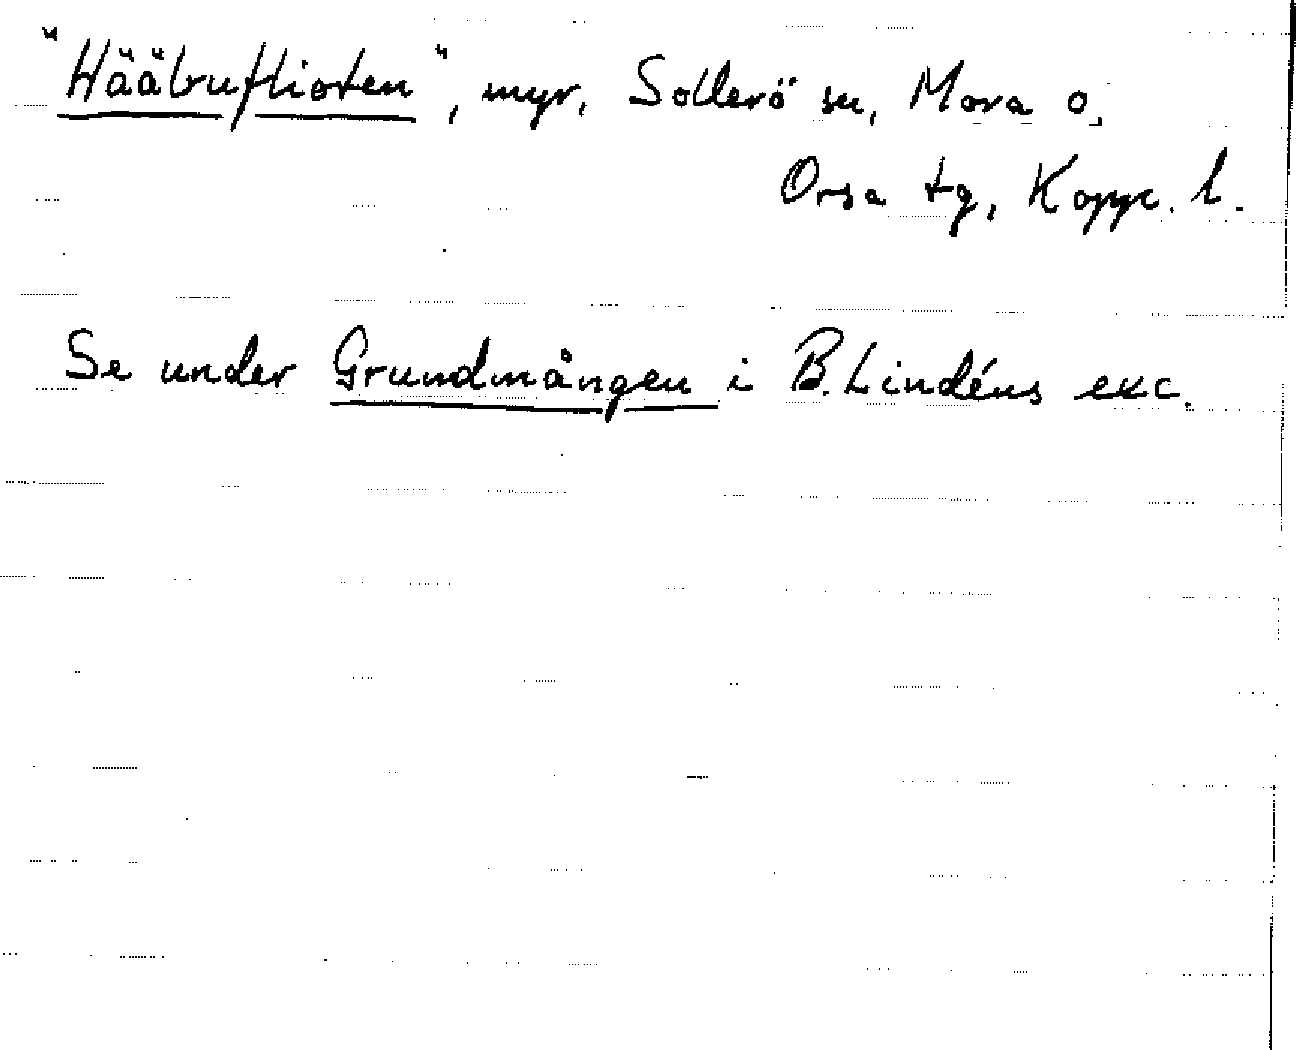 "Hääbuflioten", myr, Sollerö sn, Mora o,
Orsa tg, Kopp. l.
Se under Grundmången i B. Lindéns exc.